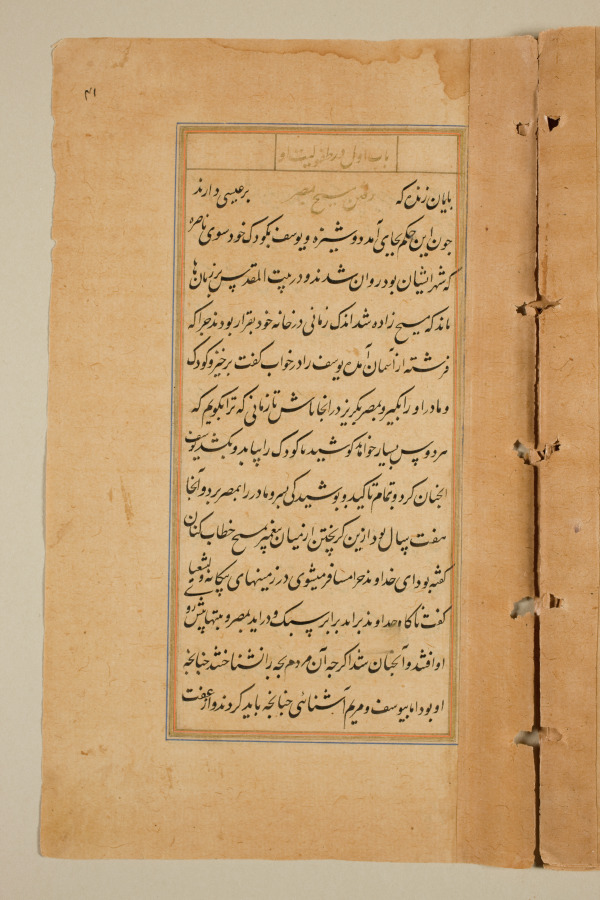 ۴۱
باب اول در طفولیت او
بایان زنده که رفتن مسیح بمصر بر عیسی دارند
چون این حکم بجای آمد دوشیزه و یوسف بکودک خود سوی ناصره
که شهر ایشان بود روان شدند و در بیت المقدس بر زبان ها
ماند که مسیح زاده شد اندک زمانی در خانه خود بقرار بودند چرا که
فرشته از آسمان آمده یوسف را در خواب گفت برخیز و کودک
و مادر او را بگیر و بمصر بگریز در انجا باش تا زمانی که ترا بگویم که
هردوس بسیار خواهد کوشید تا کودک را بیابد و بکشد یوسف
انچنان کرد و تمام تاکید و پوشیدگی پسر و مادر را بمصر برد و آنجا
هفت سال بود ازین گریختن از میان پیغمبر مسیح خطاب کنان
گفته بود ای خداوند چرا مسافر میشوی در زمینهای بیگانه و یشعیا
گفت ناگاه خداوند براید برابر سبک و دراید بمصر و بتها پیش روی
او افتند و آنچنان شد اگرچه آن مردم بچه را نشناختند چنانچه
او بود اما بیوسف و مریم آشنائی چنانچه باید کردند و از عفت